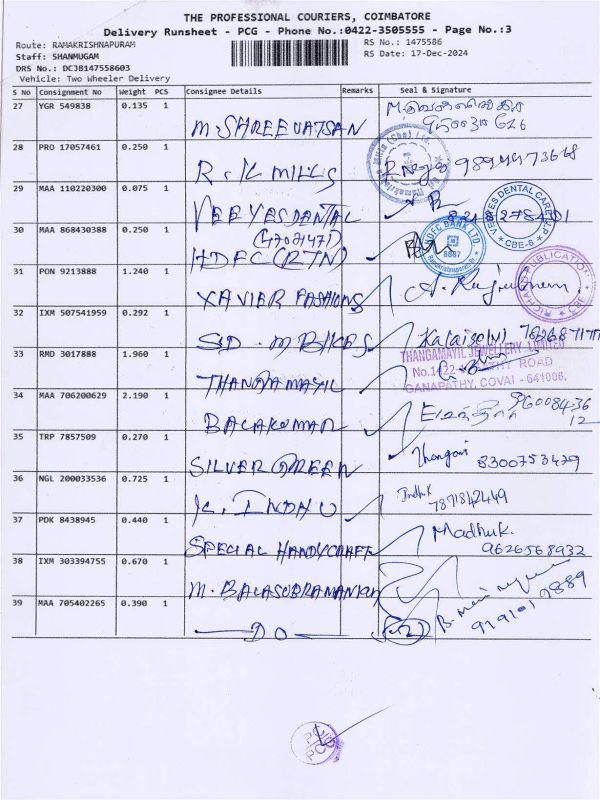 THE PROFESSIONAL COURIERS, COIMBATORE
Delivery Runsheet - PCG - Phone No.:0422-3505555 - Page No.:3
Route: RAMAKRISHNAPURAM
RS No.: 1475586
Staff: SHANMUGAM
RS Date: 17-Dec-2024
DRS No.: DCJB147558603
Vehicle: Two Wheeler Delivery
S No Consignment No Weight PCS Consignee Details Remarks Seal & Signature
27 YGR 549838 0.135 1 M. SHREEVATSAN
28 PRO 17057461 0.250 1 R.K MILLS 9894473668
29 MAA 110220300 0.075 1 VEEYES DENTAL
VEEYES DENTAL CARE LLP
CBE-6
30 MAA 868430388 0.250 1 HDFC (RTN)
HDFC BANK LTD
31 PON 9213888 1.240 1 XAVIER FASHIONS
32 IXM 507541959 0.292 1 SD. M BIKES
33 RMD 3017888 1.960 1 THANGAMAYIL
THANGAMAYIL JEWELLERY LIMITED
ROAD
GANAPATHY, COVAI - 641006.
34 MAA 706200629 2.190 1 BALAKUMAR
35 TRP 7857509 0.270 1 SILVER GREEN 8300753429
36 NGL 200033536 0.725 1 K. INDHU 7871842449
37 PDK 8438945 0.440 1 SPECIAL HANDYCRAFT Madhu K.
9626568932
38 IXM 303394755 0.670 1 M. BALASUBRAMANIAN
39 MAA 705402265 0.390 1 DO